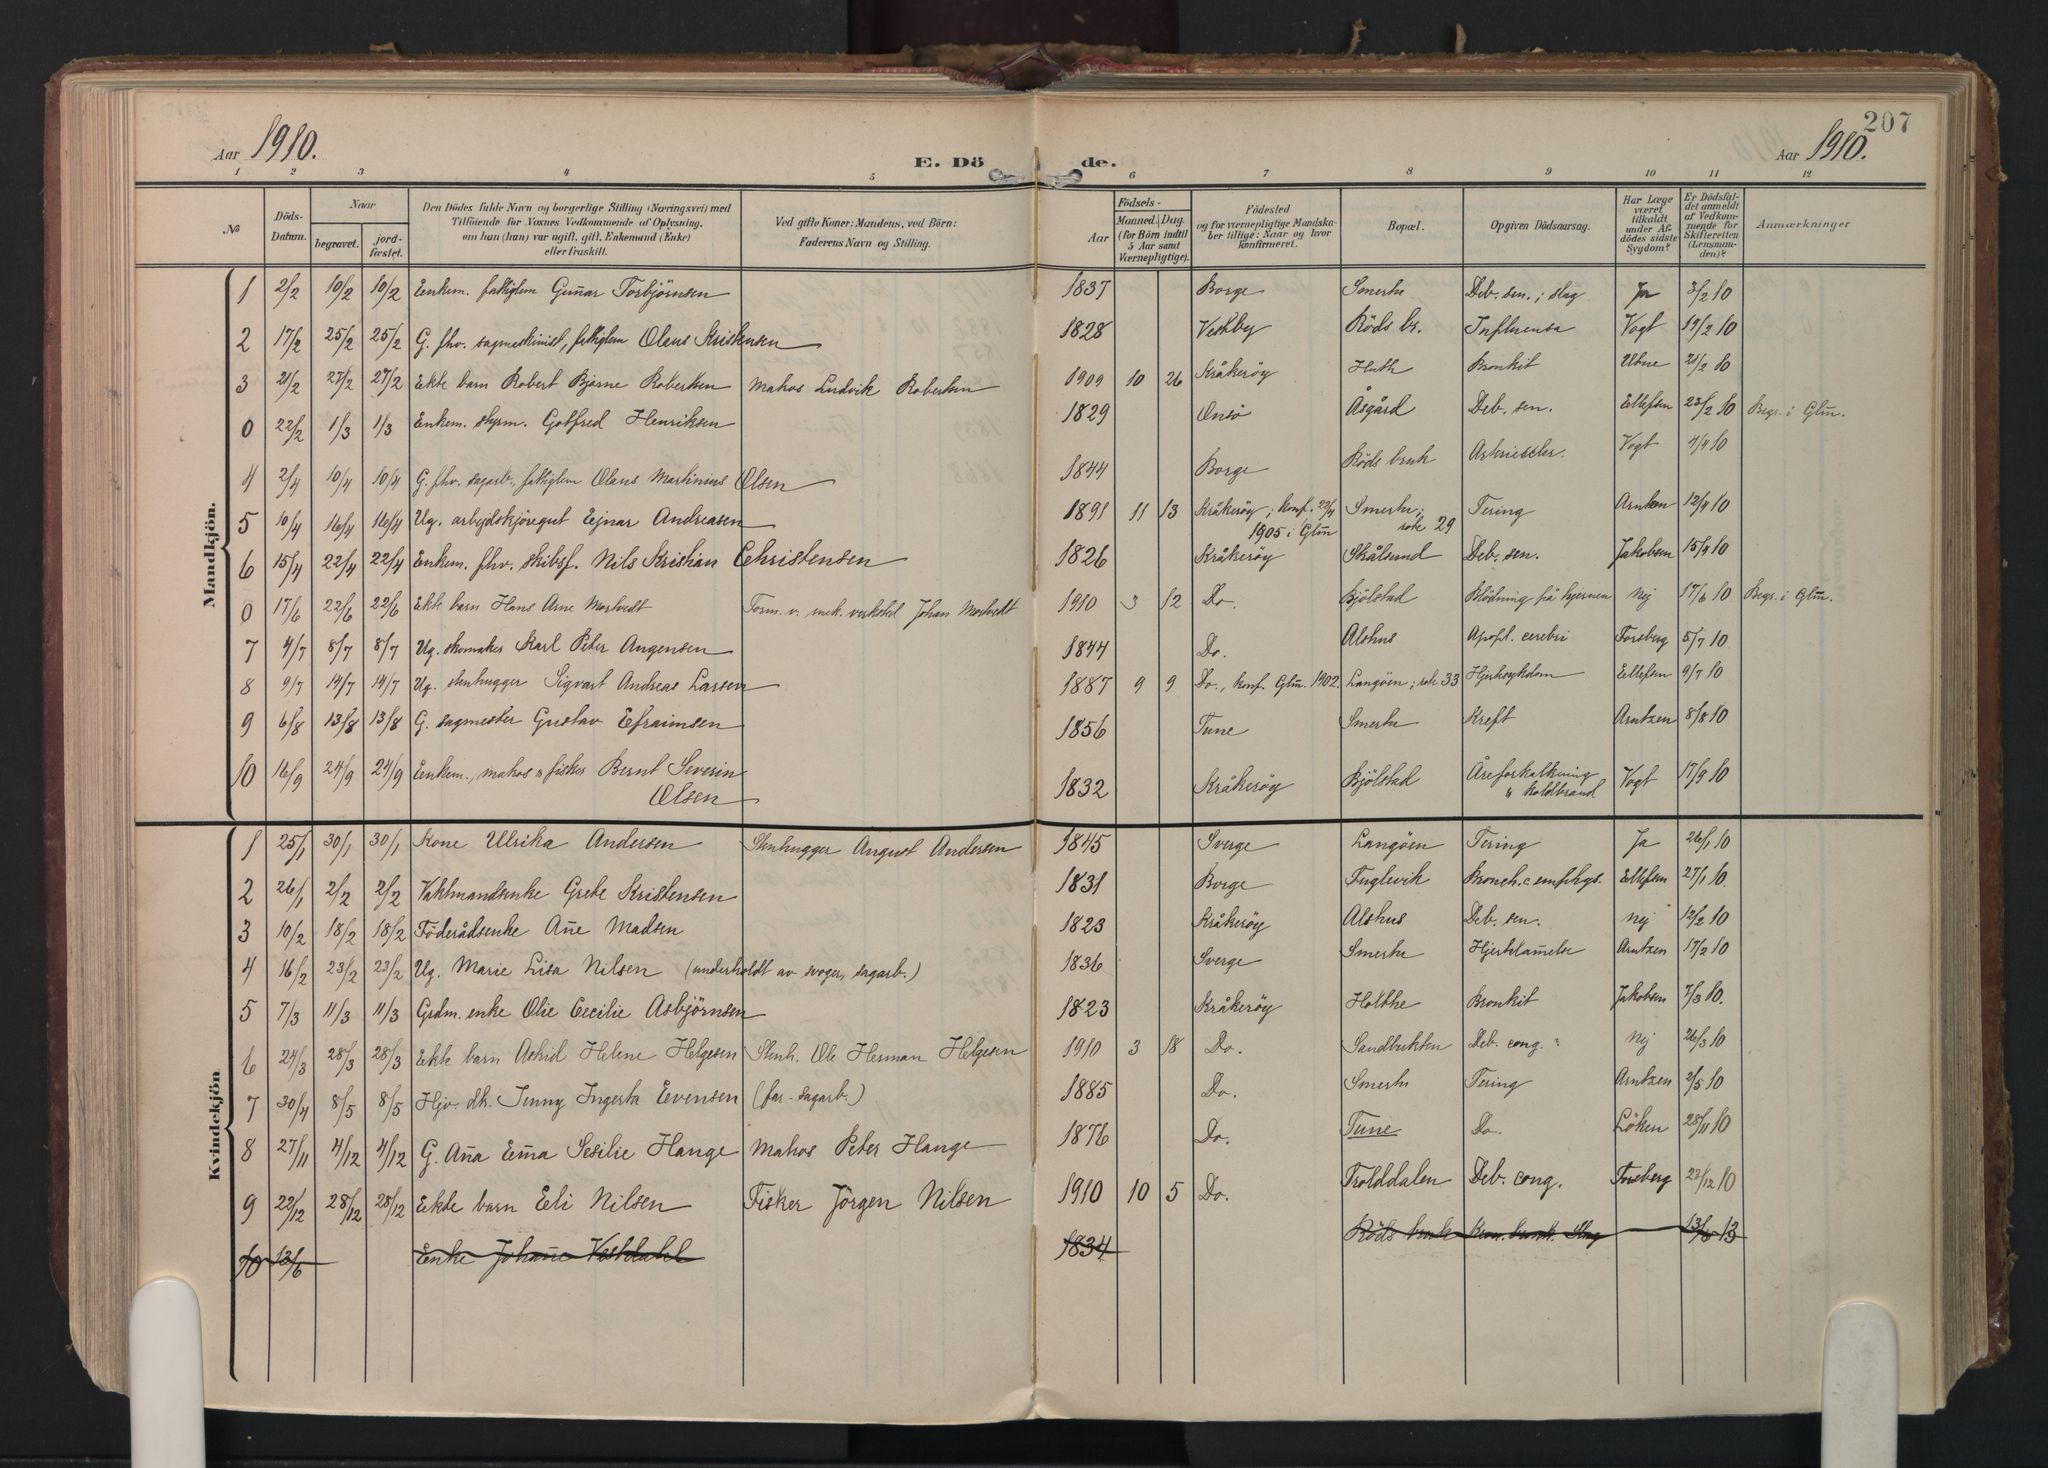 207
Aar 1910.
E. Döde.
Aar 1910.
1 2 3 4 5 6 7 8 9 10 11 12
No
Döds-Datum.
Naar
begravet.
jord-fæstet.
Den Dödes fulde Navn og borgerlige Stilling (Næringsvei) med
Tilföiende for Voxnes Vedkommende af Oplysning,
om han (hun) var ugift, gift, Enkemand (Enke)
eller fraskilt.
Ved gifte Koner: Mandens, ved Börn:
Faderens Navn og Stilling.
Födsels-
Aar
Maaned. Dag.
(for Börn indtil
5 Aar samt
Værnepligtige).
Födested
og for værnepligtige Mandska-
ber tillige: Naar og hvor
konfirmeret.
Bopæl.
Opgiven Dödsaarsag.
Har Læge
været
tilkaldt
under Af-
dödes sidste
Sygdom?
Er Dödsfal-
det anmeldt
af Vedkom-
mende for
Skifteretten
(Lensman-
den)?
Anmærkninger
Mandkjön.
1 2/2 10/2 10/2 Enkem. fattiglem Gunnar Torbjörnsen 1837 Borge Smertu Deb. sen.; slag Ja 3/2 10
2 17/2 25/2 25/2 G. fhv. sagmaskinist, fattiglem Olaus Kristensen 1828 Vestby Röds br. Influensa Vogt 19/2 10
3 21/2 27/2 27/2 Ekte barn Robert Bjarne Robertsen Matros Ludvik Robertsen 1909 10 26 Kråkeröy Huth Bronkit 21/2 10
0 22/2 1/3 1/3 Enkem. styrm. Gotfred Henriksen 1829 Onsö Åsgård Deb. sen. Ellefsen 23/2 10 Begr. i Glm.
4 2/4 10/4 10/4 G. fhv. sagarb., fattiglem Olaus Martinius Olsen 1844 Borge Röds bruk Vogt 4/4 10
5 10/4 16/4 16/4 Ug. arbejdskjöregut Ejnar Andreasen 1891 11 13 Kråkeröy; konf. 22/4 1905 i Glm Smertu; rote 29 Tering Arntzen 12/4 10
6 15/4 22/4 22/4 Enkem. fhv. skibsf. Nils Kristian Christensen 1826 Kråkeröy Skålsund Deb. sen. Jakobsen 15/4 10
0 17/6 22/6 22/6 Ekte barn Hans Arne Mostvedt Form. v. mek. verksted Johan Mostvedt 1910 3 12 Do. Bjölstad Blödning på hjernen Nej 17/6 10 Begr. i Glm.
7 4/7 8/7 8/7 Ug. skomaker Karl Peter Angensen 1844 Do. Alshus Apopl. cerebri Forsberg 5/7 10
8 9/7 14/7 14/7 Ug. stenhugger Sigvart Andreas Larsen 1887 9 9 Do., konf. Glm. 1902. Langöen; rote 33 Hjertesykdom Ellefsen 9/7 10
9 6/8 13/8 13/8 G. sagmester Gustav Efraimsen 1856 Tune Smertu Kreft Arntzen 8/8 10
10 16/9 24/9 24/9 Enkem., matros & fisker Bernt Severin
Olsen 1832 Kråkeröy Bjölstad Åreforkalkning
" koldbrand Vogt 17/9 10
Kvindekjön
1 25/1 30/1 30/1 Kone Ulrika Andersen Stenhugger August Andersen 1845 Sverge Langöen Tering Ja 26/1 10
2 26/1 2/2 2/2 Vaktmandsenke Grete Kristensen 1831 Borge Fuglevik Bronch. c emphys. Ellefsen 27/1 10.
3 10/2 18/2 18/2 Föderådsenke Añe Madsen 1823 Kråkeröy Alshus Deb. sen. Nej 12/2 10
4 16/2 23/2 23/2 Ug. Marie Lisa Nilsen (underholdt av svoger, sagarb.) 1836 Sverge Smertu Hjertelammelse Arntzen 17/2 10
5 7/3 11/3 11/3 Grdm. enke Olie Cecilie Asbjörnsen 1823 Kråkeröy Holthe Bronkit Jakobsen 7/3 10.
6 24/3 28/3 28/3 Ekte barn Astrid Helene Helgesen Stenh. Ole Herman Helgesen 1910 3 18 Do. Sandbukten Deb. cong. Nej 26/3 10
7 30/4 8/5 8/5 Hjv. dt. Jenny Ingerta Evensen (far - sagarb.) 1885 Do. Smertu Tering Arntzen 2/5 10
8 27/11 4/12 4/12 G. Aña Em̃a Sesilie Hange Matros Peter Hange 1876 Do. Tune Do. Löken 28/11 10
9 22/12 28/12 28/12 Ekte barn Eli Nilsen Fisker Jörgen Nilsen 1910 10 5 Do. Trolddalen Deb. cong. Forsberg 23/12 10
10 13/6 Enke Johañe Vestdahl 1834 Röds bruk Slag 13/6 13